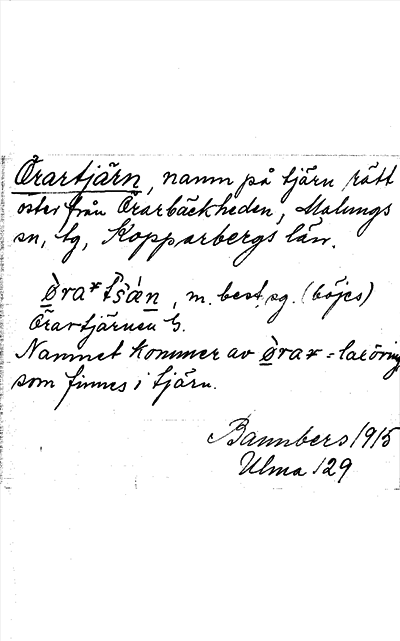 Örartjärn, namn på tjärn rätt
öster från Örarbäckheden, Malungs
sn, tg, Kopparbergs län.
m. best. sg. (böjes)
Örartjärnen G.
Namnet kommer av = laxöring
som finnes i tjärn.
Bannbers 1915
Ulma 129